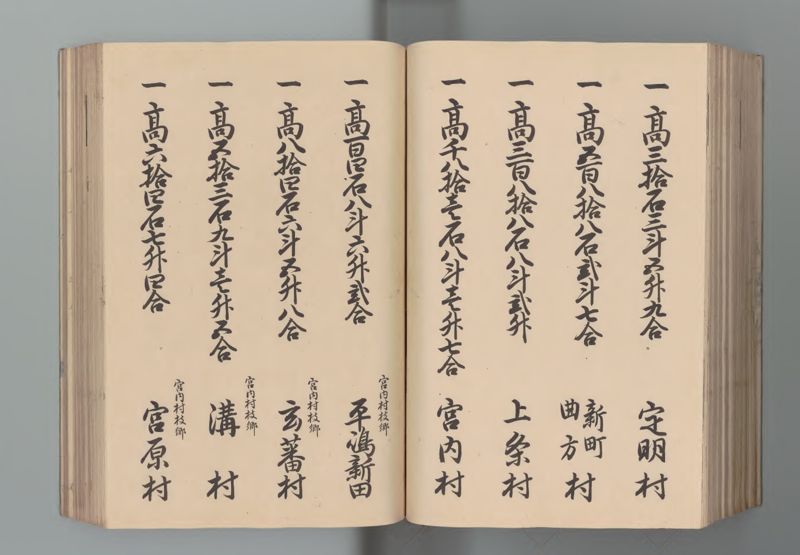 一高三拾石三斗五升九合 定明村
一高五百八拾八石弐斗七合 新町曲方村
一高三百八拾八石八斗弐升 上条村
一高千八拾壱石八斗壱升七合 宮内村
一高百四石八斗六升弐合 宮内村枝郷 平嶋新田
一高八拾四石六斗五升八合 宮内村枝郷 玄蕃村
一高五拾三石九斗壱升五合 宮内村枝郷 溝村
一高六拾四石七升四合 宮内村枝郷 宮原村